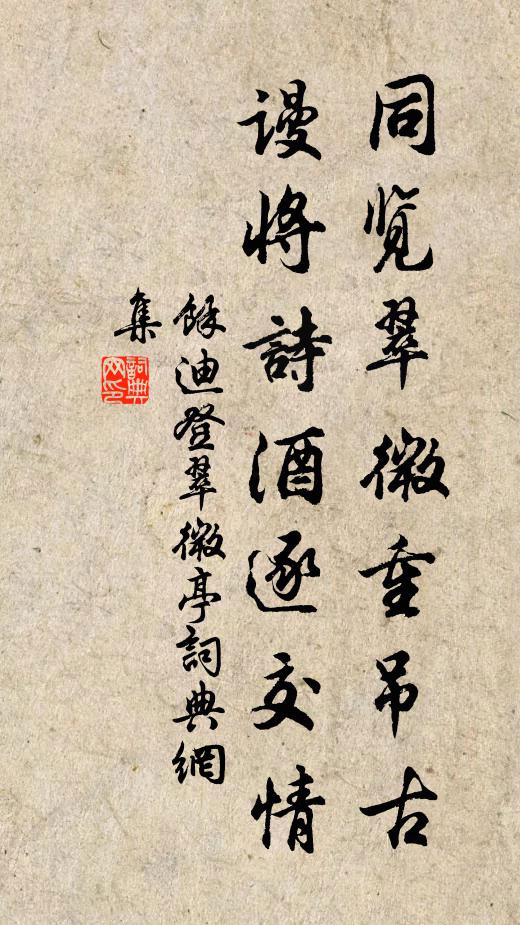 同览翠微重吊古
谩将詩酒逐交情
馀迪登翠微亭詞典網
集
詞典
网印